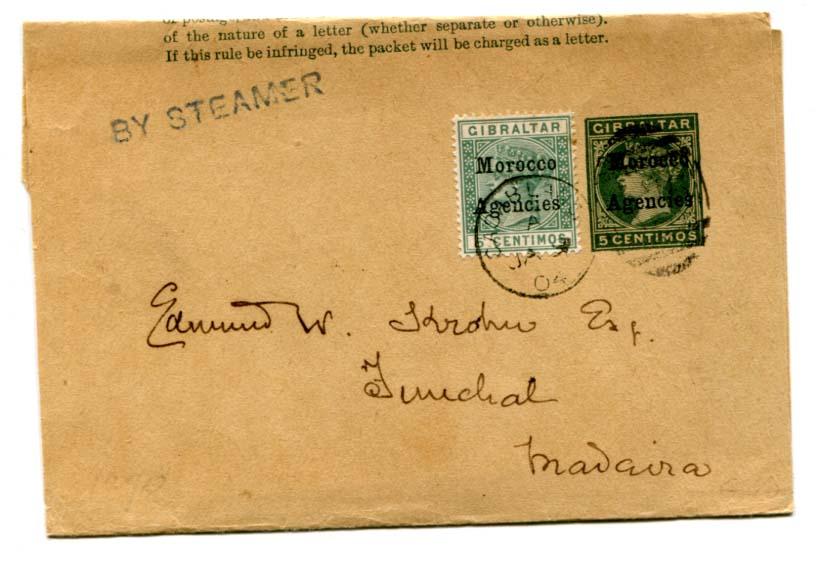 of the nature of a letter (whether separate or otherwise).
If this rule be infringed, the packet will be charged as a letter.
BY STEAMER
GIBRALTAR
Morocco
Agencies
5 CENTIMOS
GIBRALTAR
Morocco
Agencies
5 CENTIMOS
A
04
Edmund W. Krohn Esq.
Funchal
Madeira